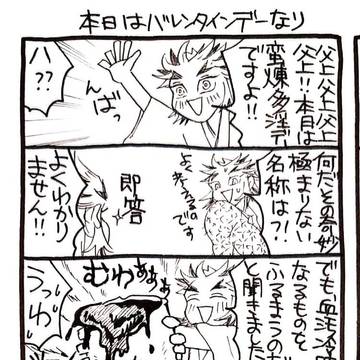 本日はバレンタインデーなり
父上父上父上
父上!!本日は
蛮煉多淫デー
ですよ!!
んばっ
ハ??
何だその奇妙
極まりない
名称は?!
よく考えつくものです
即答
よくわかり
ません!!
でも、血注冷
なるものを
ふるまうのだ
と聞きました
むわぁぁぁ
うっわ